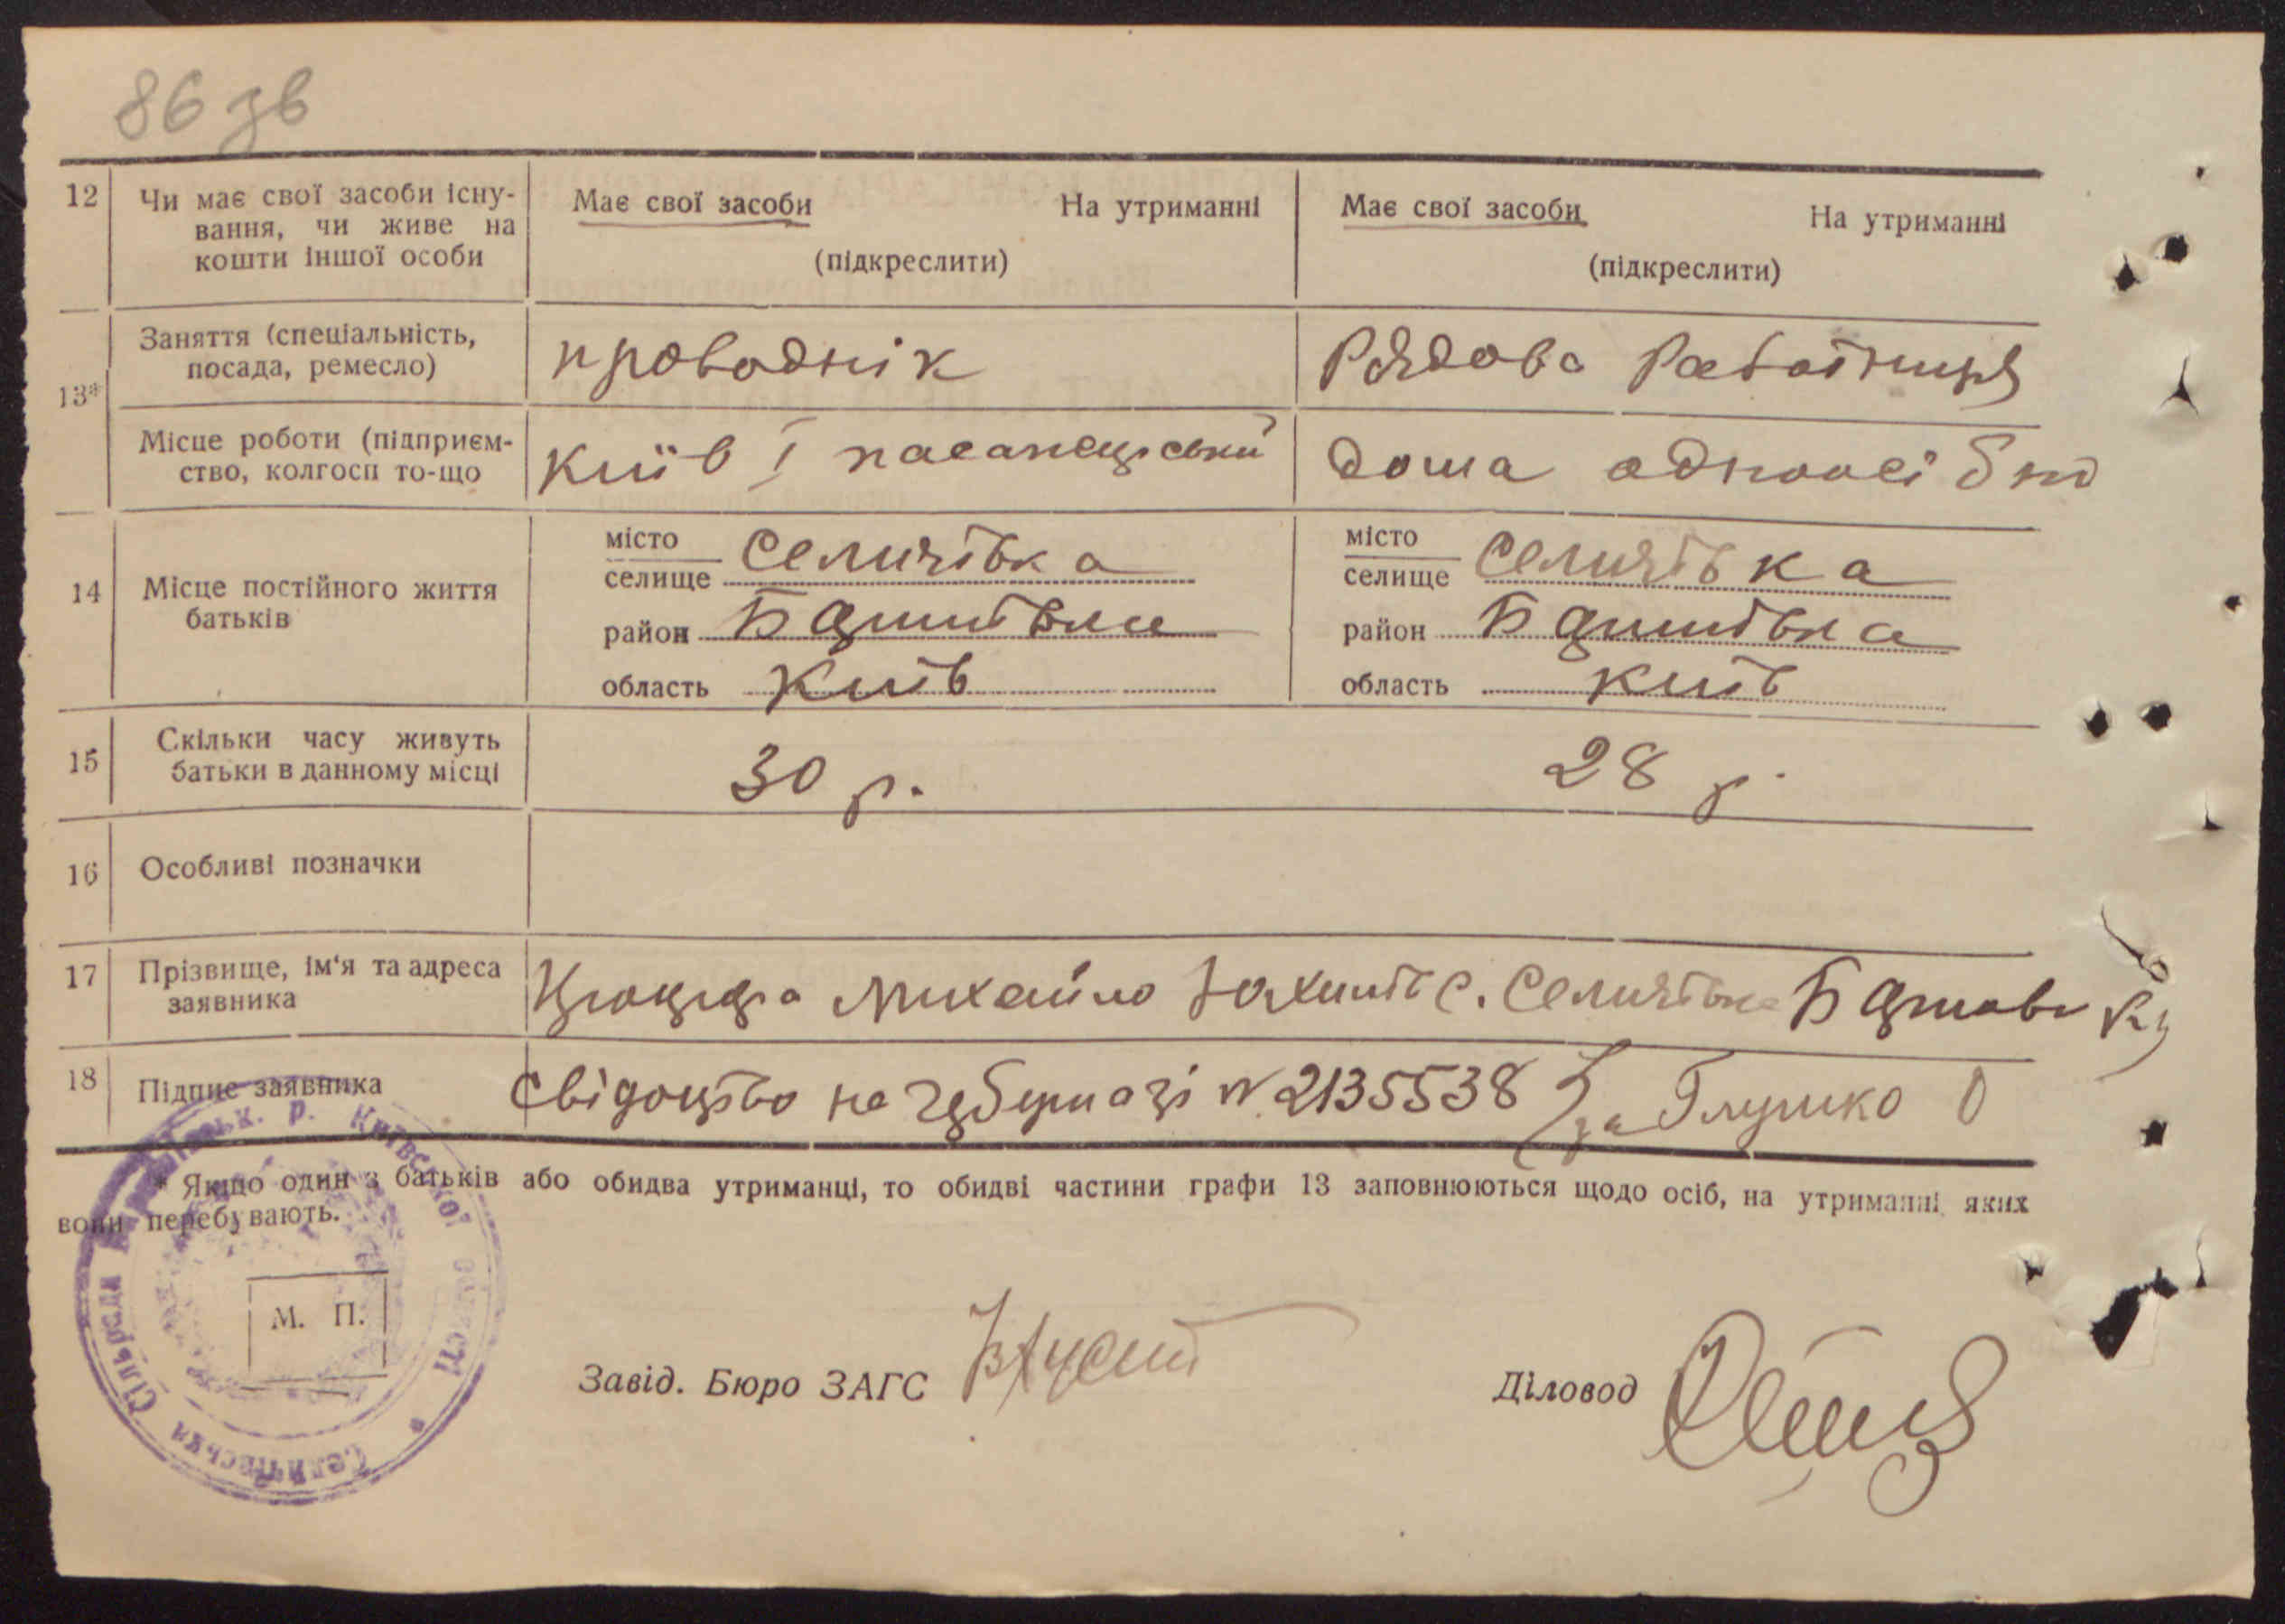 86 зв
12 Чи має свої засоби існу-
вання, чи живе на
кошти іншої особи
Має свої засоби На утриманні
(підкреслити)
Має свої засоби На утриманні
(підкреслити)
13* Заняття (спеціальність,
посада, ремесло)
проводнік
Рядова Работниця
Місце роботи (підприєм-
ство, колгосп то-що
Київ I
дома одноосібно
14 Місце постійного життя
батьків
місто
селище Селичівка
район
область Київ
місто
селище Селичівка
район
область Київ
15 Скільки часу живуть
батьки в данному місці
30 р.
28 р.
16 Особливі позначки
17 Прізвище, ім'я та адреса
заявника
Михайло с. Селичівка
18 Підпис заявника
Свідоцтво на № 2135538 за Глушко О
* Якщо один з батьків або обидва утриманці, то обидві частини графи 13 заповнюються щодо осіб, на утриманні яких
вони перебувають.
М. П.
Селичівська Сільрада р. Київської області
Завід. Бюро ЗАГС
Діловод